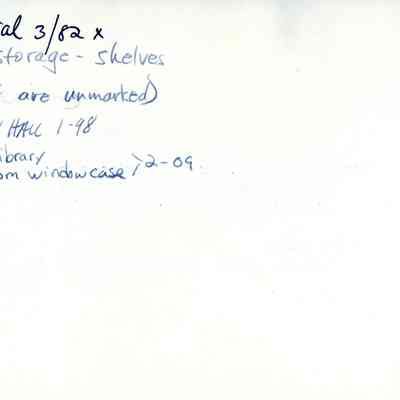 al 3/82 x
storage - shelves
are unmarked)
HALL 1-98
ibrary
om windowcase > 2-09